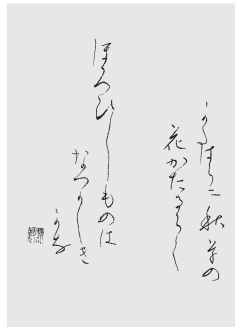 かたはらに秋草の
花かたるらく
ほろびしものは
なつかしき
かな